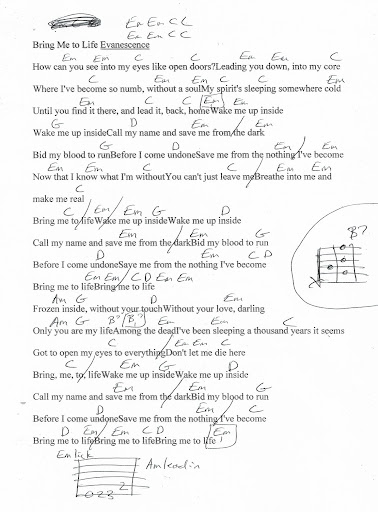 Em Em C C
Em Em C C
Bring Me to Life Evanescence
Em Em C C Em Em
How can you see into my eyes like open doors?Leading you down, into my core
C C Em Em C C Em
Where I've become so numb, without a soulMy spirit's sleeping somewhere cold
Em C C Em Em
Until you find it there, and lead it, back, homeWake me up inside
G D Em / Em
Wake me up insideCall my name and save me from the dark
G D Em / Em
Bid my blood to runBefore I come undoneSave me from the nothing I've become
Em Em C C Em Em
Now that I know what I'm withoutYou can't just leave meBreathe into me and
C C
make me real
C / Em / Em G D
Bring me to lifeWake me up insideWake me up inside
Em / Em G
Call my name and save me from the darkBid my blood to run
D Em C D
Before I come undoneSave me from the nothing I've become
Em Em / C D Em Em
Bring me to lifeBring me to life
Am G D Em
Frozen inside, without your touchWithout your love, darling
Am G B? (B?) Em Em C
Only you are my lifeAmong the deadI've been sleeping a thousand years it seems
C / Em Em C
Got to open my eyes to everythingDon't let me die here
C / Em G D
Bring, me, to, lifeWake me up insideWake me up inside
Em / Em G
Call my name and save me from the darkBid my blood to run
D Em C
Before I come undoneSave me from the nothing I've become
D Em / Em C D Em
Bring me to lifeBring me to lifeBring me to life
Em lick
Am lead in
0 2 3 2
B?
X